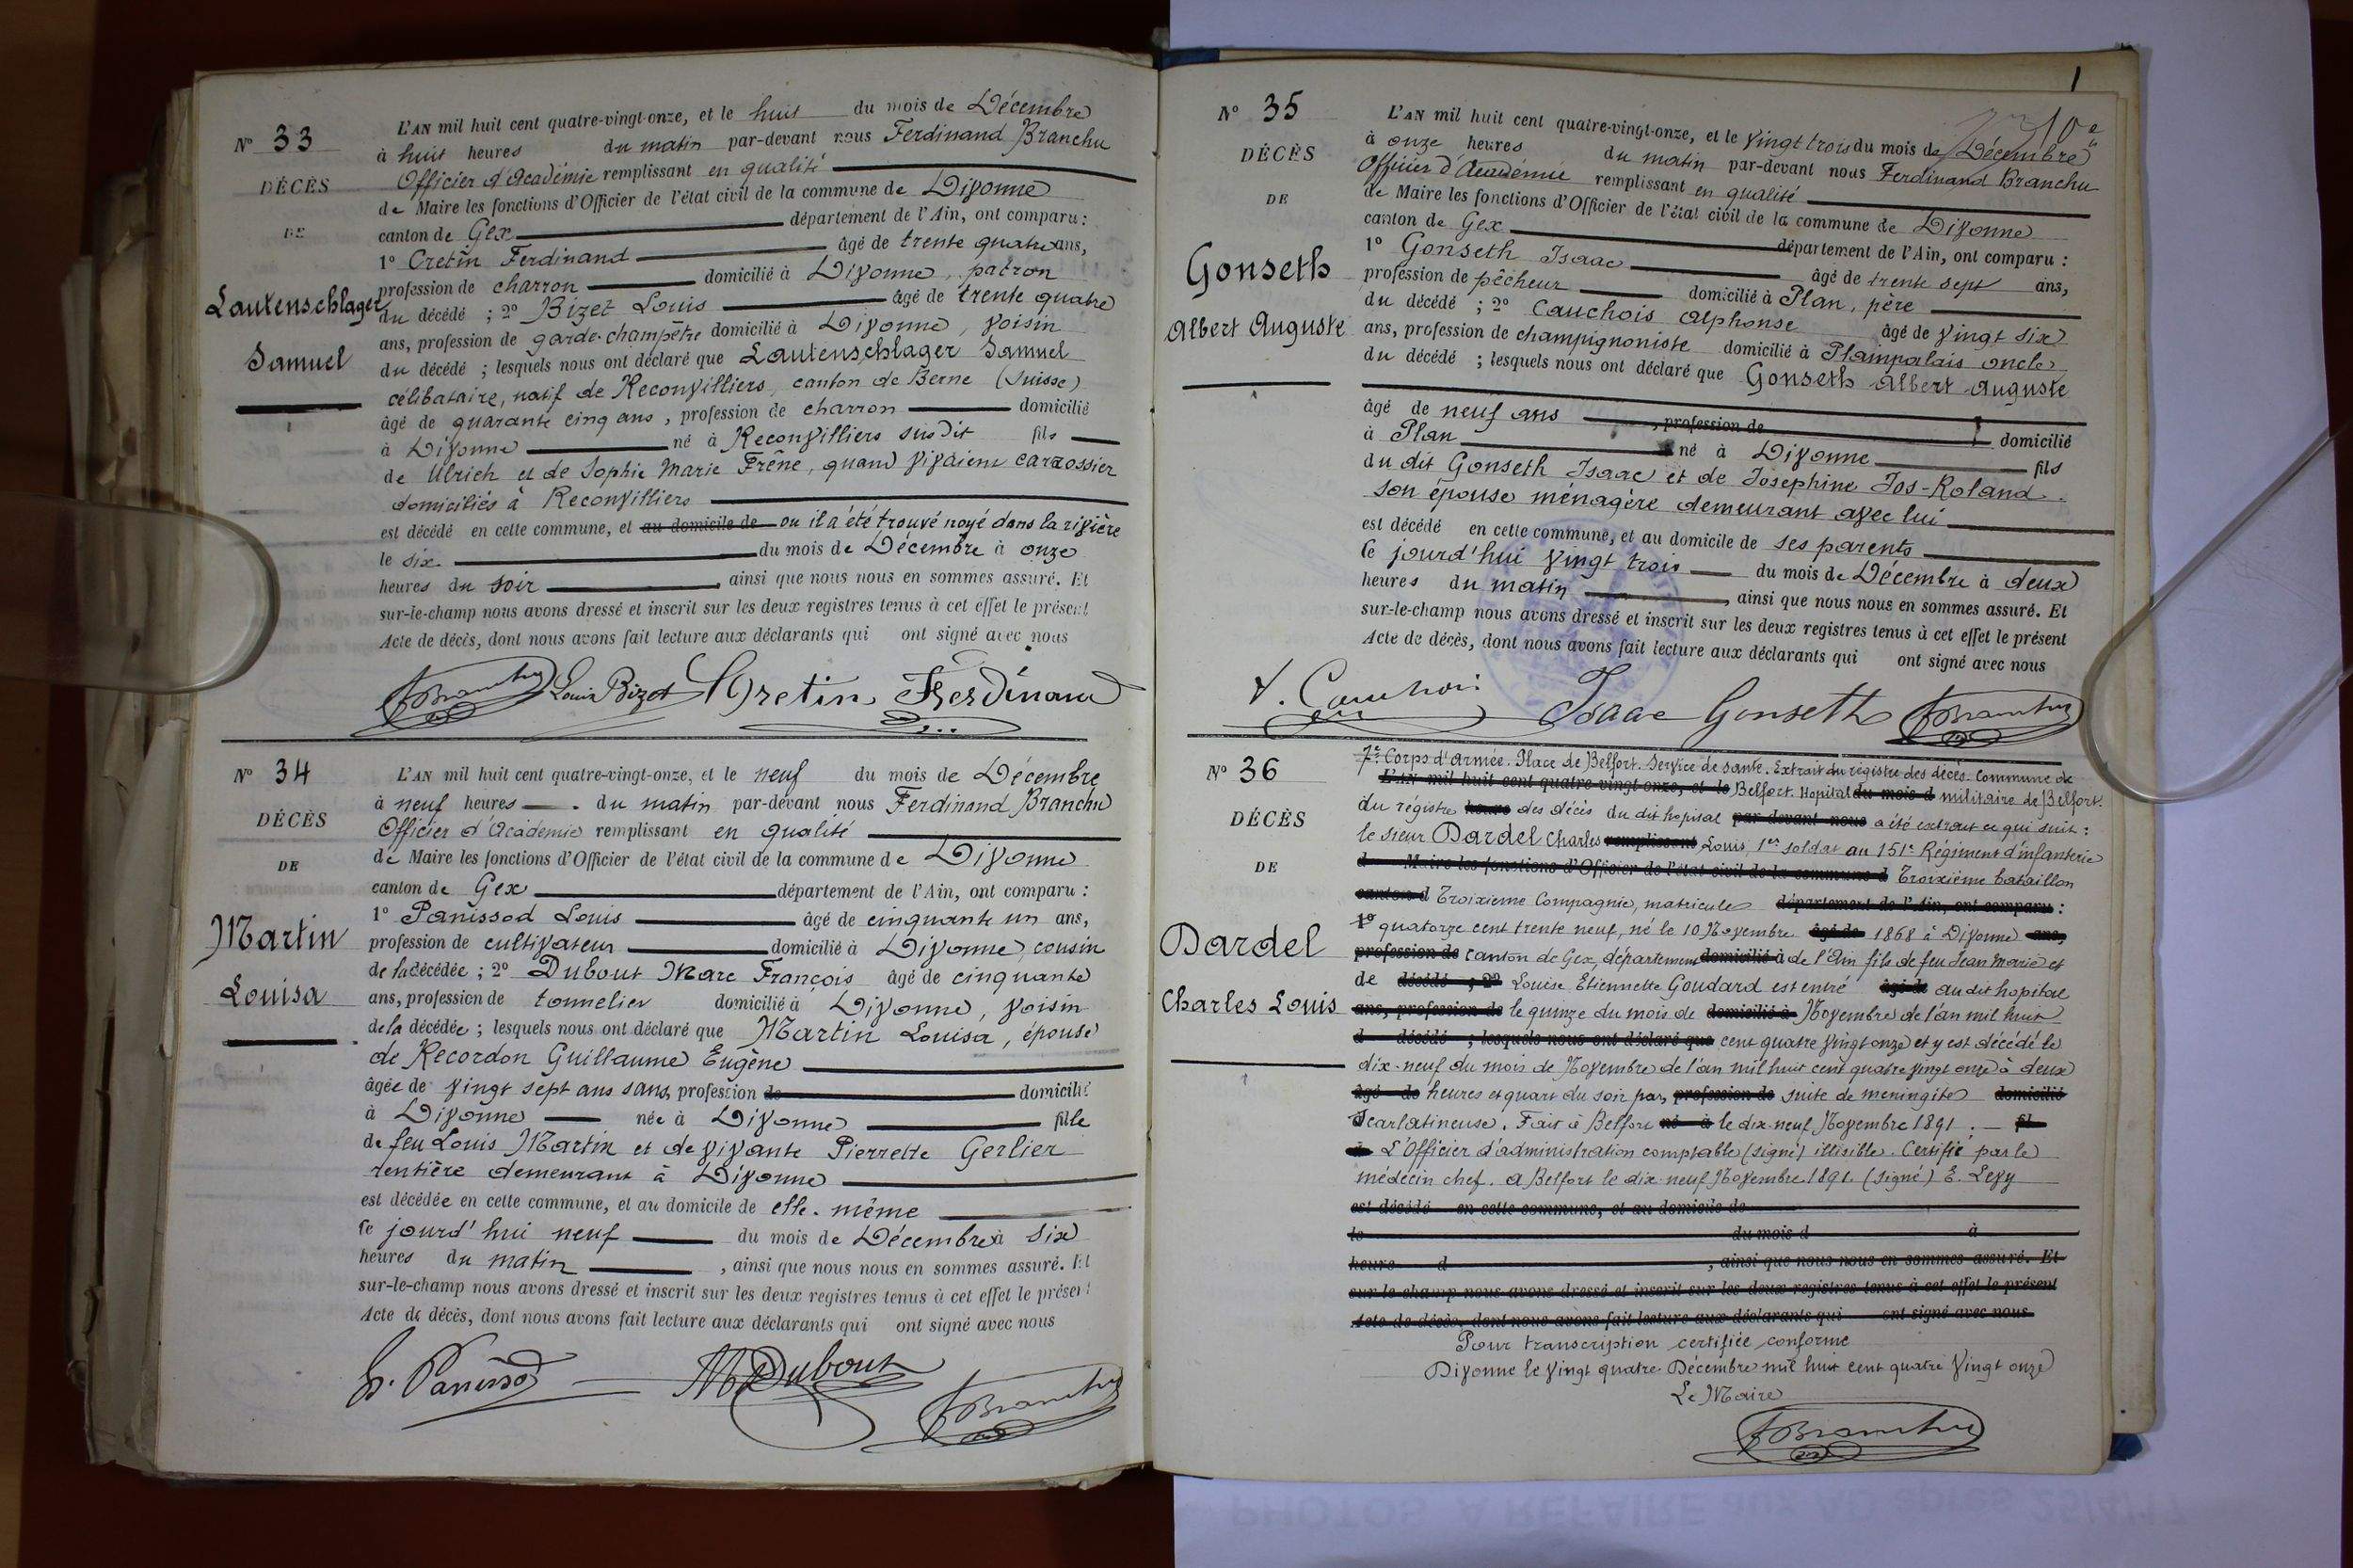 N° 33
DÉCÈS
DE
Lautenschlager
Samuel
L'AN mil huit cent quatre-vingt-onze, et le huit du mois de Décembre
à huit heures du matin par-devant nous Ferdinand Branchu
Officier d'Académie remplissant en qualité
de Maire les fonctions d'Officier de l'état civil de la commune de Divonne
canton de Gex département de l'Ain, ont comparu :
1° Cretin Ferdinand âgé de trente quatre ans,
profession de charron domicilié à Divonne, patron
du décédé ; 2° Bizet Louis âgé de trente quatre
ans, profession de garde-champêtre domicilié à Divonne, voisin
du décédé ; lesquels nous ont déclaré que Lautenschlager Samuel
célibataire, natif de Reconvilliers, canton de Berne (Suisse)
âgé de quarante cinq ans, profession de charron domicilié
à Divonne né à Reconvilliers susdit fils
de Ulrich et de Sophie Marie Frêne, quand vivaient carrossier
domiciliés à Reconvilliers
est décédé en cette commune, et au domicile de ou il a été trouvé noyé dans la rivière
le six du mois de Décembre à onze
heures du soir, ainsi que nous nous en sommes assuré. Et
sur-le-champ nous avons dressé et inscrit sur les deux registres tenus à cet effet le présent
Acte de décès, dont nous avons fait lecture aux déclarants qui ont signé avec nous
FBranchu Louis Bizet Cretin Ferdinand
N° 34
DÉCÈS
DE
Martin
Louisa
L'AN mil huit cent quatre-vingt-onze, et le neuf du mois de Décembre
à neuf heures du matin par-devant nous Ferdinand Branchu
Officier d'Académie remplissant en qualité
de Maire les fonctions d'Officier de l'état civil de la commune de Divonne
canton de Gex département de l'Ain, ont comparu :
1° Panissod Louis âgé de cinquante un ans,
profession de cultivateur domicilié à Divonne, cousin
de la décédée ; 2° Dubout Marc François âgé de cinquante
ans, profession de tonnelier domicilié à Divonne, voisin
de la décédée ; lesquels nous ont déclaré que Martin Louisa, épouse
de Recordon Guillaume Eugène
âgée de vingt sept ans sans profession de domicilié
à Divonne née à Divonne fille
de feu Louis Martin et de vivante Pierrette Gerlier
rentière demeurant à Divonne
est décédée en cette commune, et au domicile de elle-même
le jourd'hui neuf du mois de Décembre à six
heures du matin, ainsi que nous nous en sommes assuré. Et
sur-le-champ nous avons dressé et inscrit sur les deux registres tenus à cet effet le présent
Acte de décès, dont nous avons fait lecture aux déclarants qui ont signé avec nous
L. Panissod MDubout FBranchu
1
N° 35
DÉCÈS
DE
Gonseth
Albert Auguste
L'AN mil huit cent quatre-vingt-onze, et le vingt trois du mois de Décembre
à onze heures du matin par-devant nous Ferdinand Branchu
Officier d'Académie remplissant en qualité
de Maire les fonctions d'Officier de l'état civil de la commune de Divonne
canton de Gex département de l'Ain, ont comparu :
1° Gonseth Isaac âgé de trente sept ans,
profession de pêcheur domicilié à Plan, père
du décédé ; 2° Cauchois Alphonse âgé de vingt six
ans, profession de champignoniste domicilié à Plampalais oncle
du décédé ; lesquels nous ont déclaré que Gonseth Albert Auguste
âgé de neuf ans, profession de domicilié
à Plan né à Divonne fils
du dit Gonseth Isaac et de Josephine Jos-Roland
son épouse ménagère demeurant avec lui
est décédé en cette commune, et au domicile de ses parents
le jourd'hui vingt trois du mois de Décembre à deux
heures du matin, ainsi que nous nous en sommes assuré. Et
sur-le-champ nous avons dressé et inscrit sur les deux registres tenus à cet effet le présent
Acte de décès, dont nous avons fait lecture aux déclarants qui ont signé avec nous
A. Cauchois Isaac Gonseth FBranchu
N° 36
DÉCÈS
DE
Dardel
Charles Louis
7e Corps d'Armée. Place de Belfort. Service de santé. Extrait du régistre des décès. Commune de
L'AN mil huit cent quatre-vingt-onze, et le Belfort. Hopital du mois d militaire de Belfort.
du régistre heure des décès du dit hopital par-devant nous a été extrait ce qui suit :
le sieur Dardel Charles remplissant Louis, 1er soldat au 151e Régiment d'infanterie
de Maire les fonctions d'Officier de l'état civil de la commune d Troixième bataillon
canton d Troixieme Compagnie, matricule département de l'Ain, ont comparu :
1° quatorze cent trente neuf, né le 10 Novembre âgé de 1868 à Divonne ans,
profession de canton de Gex, département domicilié à de l'Ain fils de feu Jean Marie et
de décédé ; 2° Louise Etiennette Goudard est entré âgé de au dit hopital
ans, profession de le quinze du mois de domicilié à Novembre de l'an mil huit
d décédé ; lesquels nous ont déclaré que cent quatre vingt onze et y est décédé le
dix-neuf du mois de Novembre de l'an mil huit cent quatre vingt onze à deux
âgé de heures et quart du soir par profession de suite de meningite domicilié
Scarlatineuse. Fait à Belfort né à le dix-neuf Novembre 1891. fil
de L'Officier d'administration comptable (signé) illisible. Certifié par le
médecin chef. A Belfort le dix-neuf Novembre 1891. (signé) E. Levy
est décédé en cette commune, et au domicile de
le du mois d à
heure d, ainsi que nous nous en sommes assuré. Et
sur-le-champ nous avons dressé et inscrit sur les deux registres tenus à cet effet le présent
Acte de décès, dont nous avons fait lecture aux déclarants qui ont signé avec nous
Pour transcription certifiée conforme
Divonne le vingt quatre Décembre mil huit cent quatre vingt onze
Le Maire
FBranchu